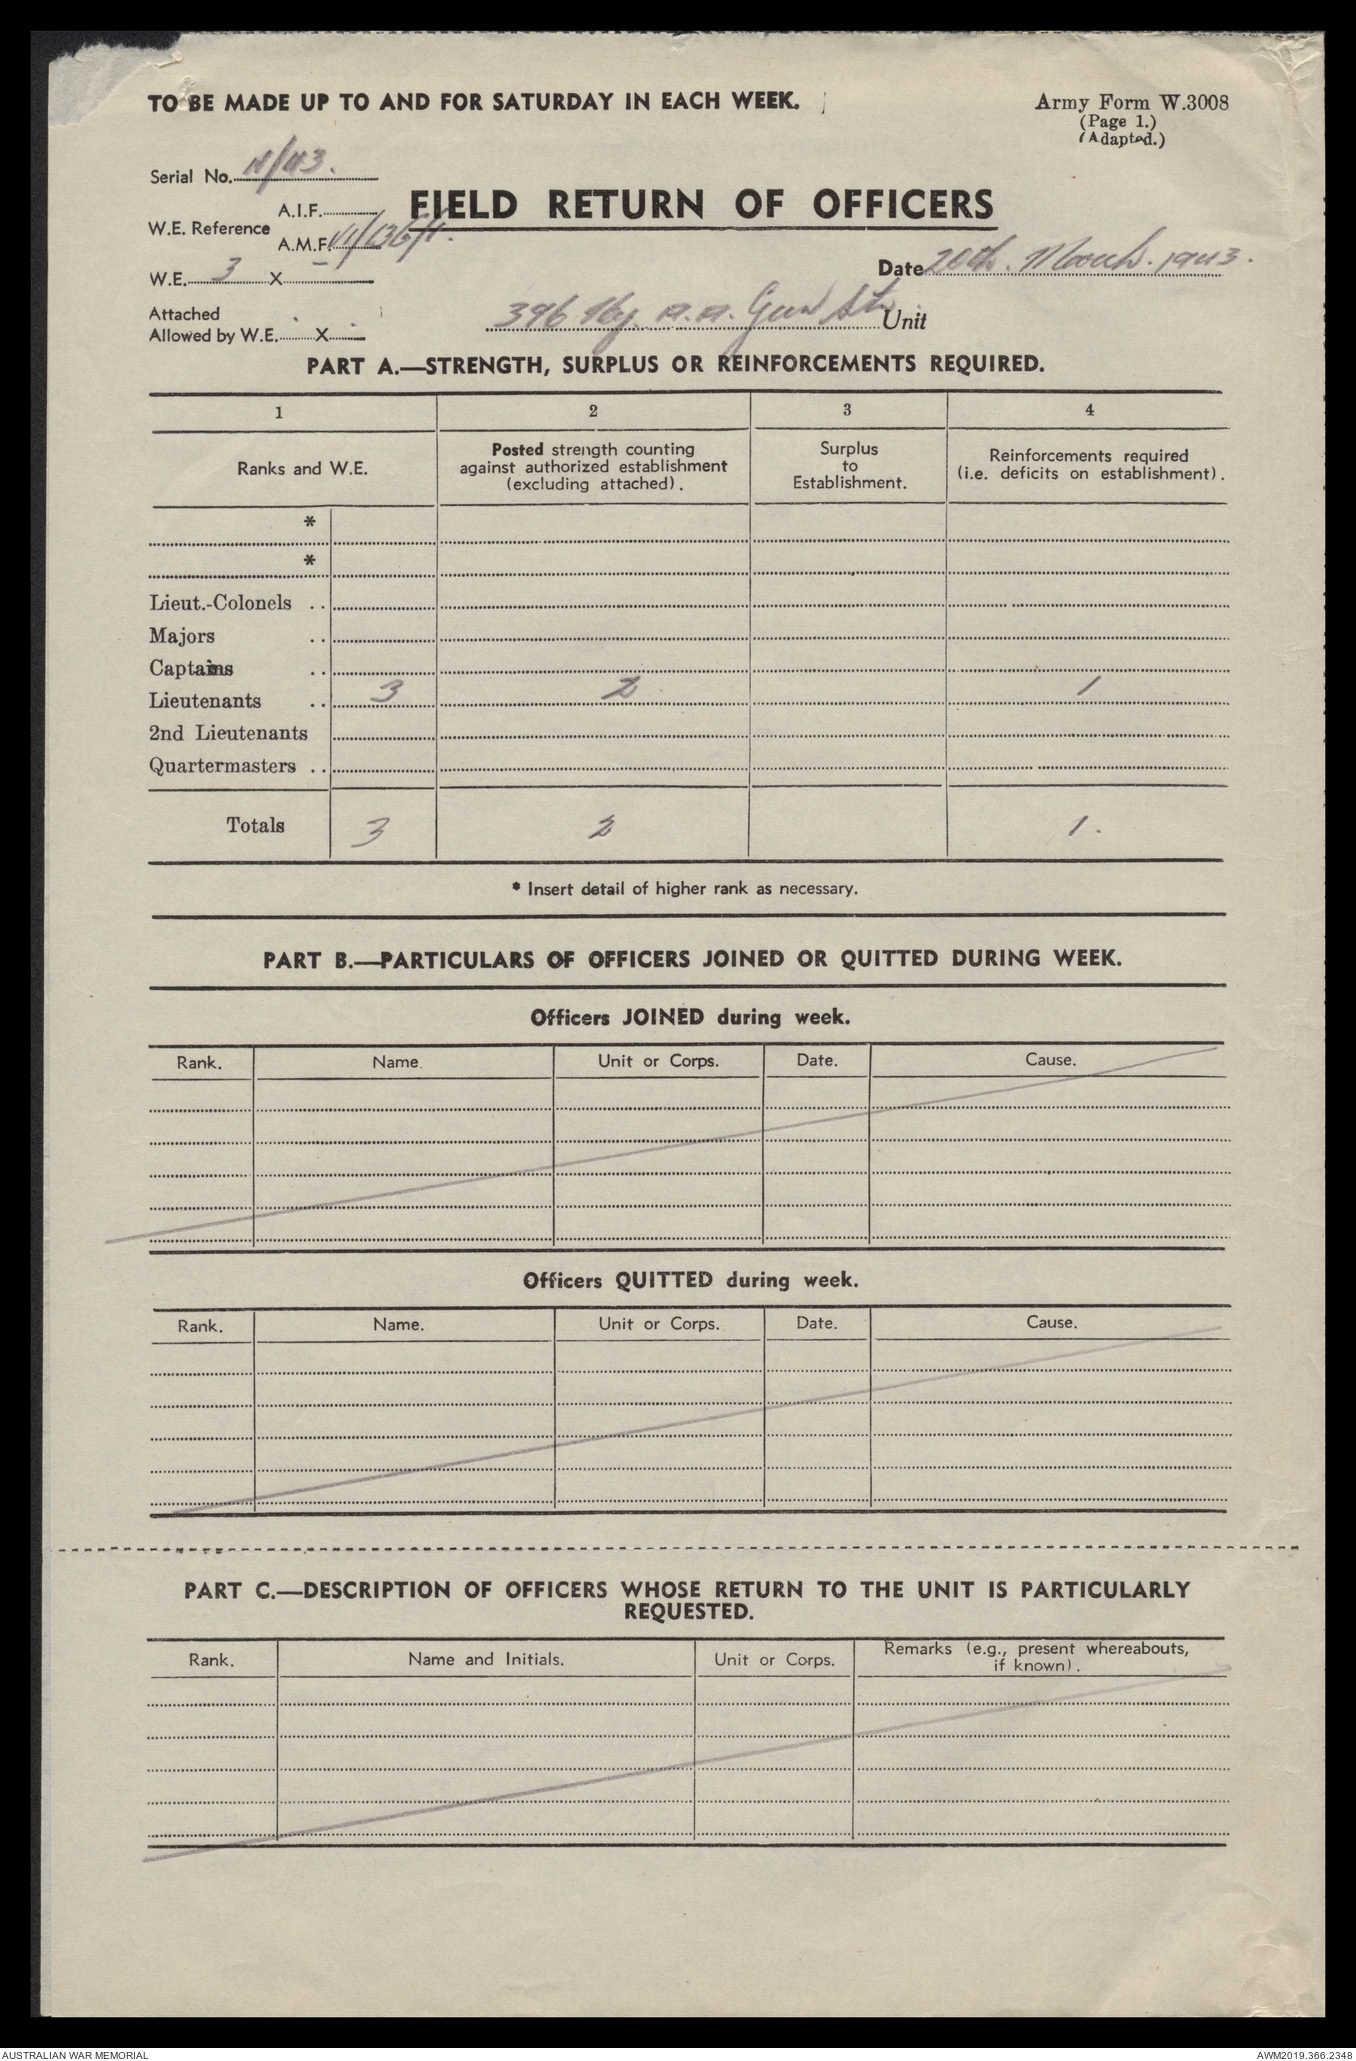 TO BE MADE UP TO AND FOR SATURDAY IN EACH WEEK.
Army Form W.3008
(Page 1.)
(Adapted.)
Serial No.
FIELD RETURN OF OFFICERS
W.E. Reference A.I.F.
A.M.F. VI/13G/1.
W.E. 3 X
Date 20th. March. 1943.
Attached
Allowed by W.E. X
396 Hy. A.A. Gun Stn. Unit
PART A.—STRENGTH, SURPLUS OR REINFORCEMENTS REQUIRED.
1 2 3 4
Ranks and W.E.
Posted strength counting against authorized establishment (excluding attached).
Surplus to Establishment.
Reinforcements required (i.e. deficits on establishment).
*
*
Lieut.-Colonels ..
Majors ..
Captains ..
Lieutenants .. 3 2 1
2nd Lieutenants
Quartermasters ..
Totals 3 2 1.
* Insert detail of higher rank as necessary.
PART B.—PARTICULARS OF OFFICERS JOINED OR QUITTED DURING WEEK.
Officers JOINED during week.
Rank. Name. Unit or Corps. Date. Cause.
Officers QUITTED during week.
Rank. Name. Unit or Corps. Date. Cause.
PART C.—DESCRIPTION OF OFFICERS WHOSE RETURN TO THE UNIT IS PARTICULARLY
REQUESTED.
Rank. Name and Initials. Unit or Corps. Remarks (e.g., present whereabouts, if known).
AUSTRALIAN WAR MEMORIAL
AWM2019.366.2348